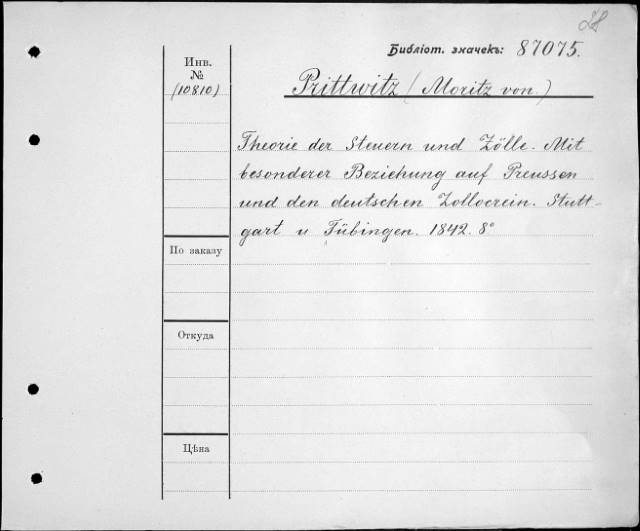 Библіот. значекъ: 87075.
Инв.
№
(10810)
Prittwitz (Moritz von)
Theorie der Steuern und Zölle. Mit
besonderer Beziehung auf Preussen
und den deutschen Zollverein. Stutt-
gart u Tübingen. 1842. 8°
По заказу
Откуда
Цѣна